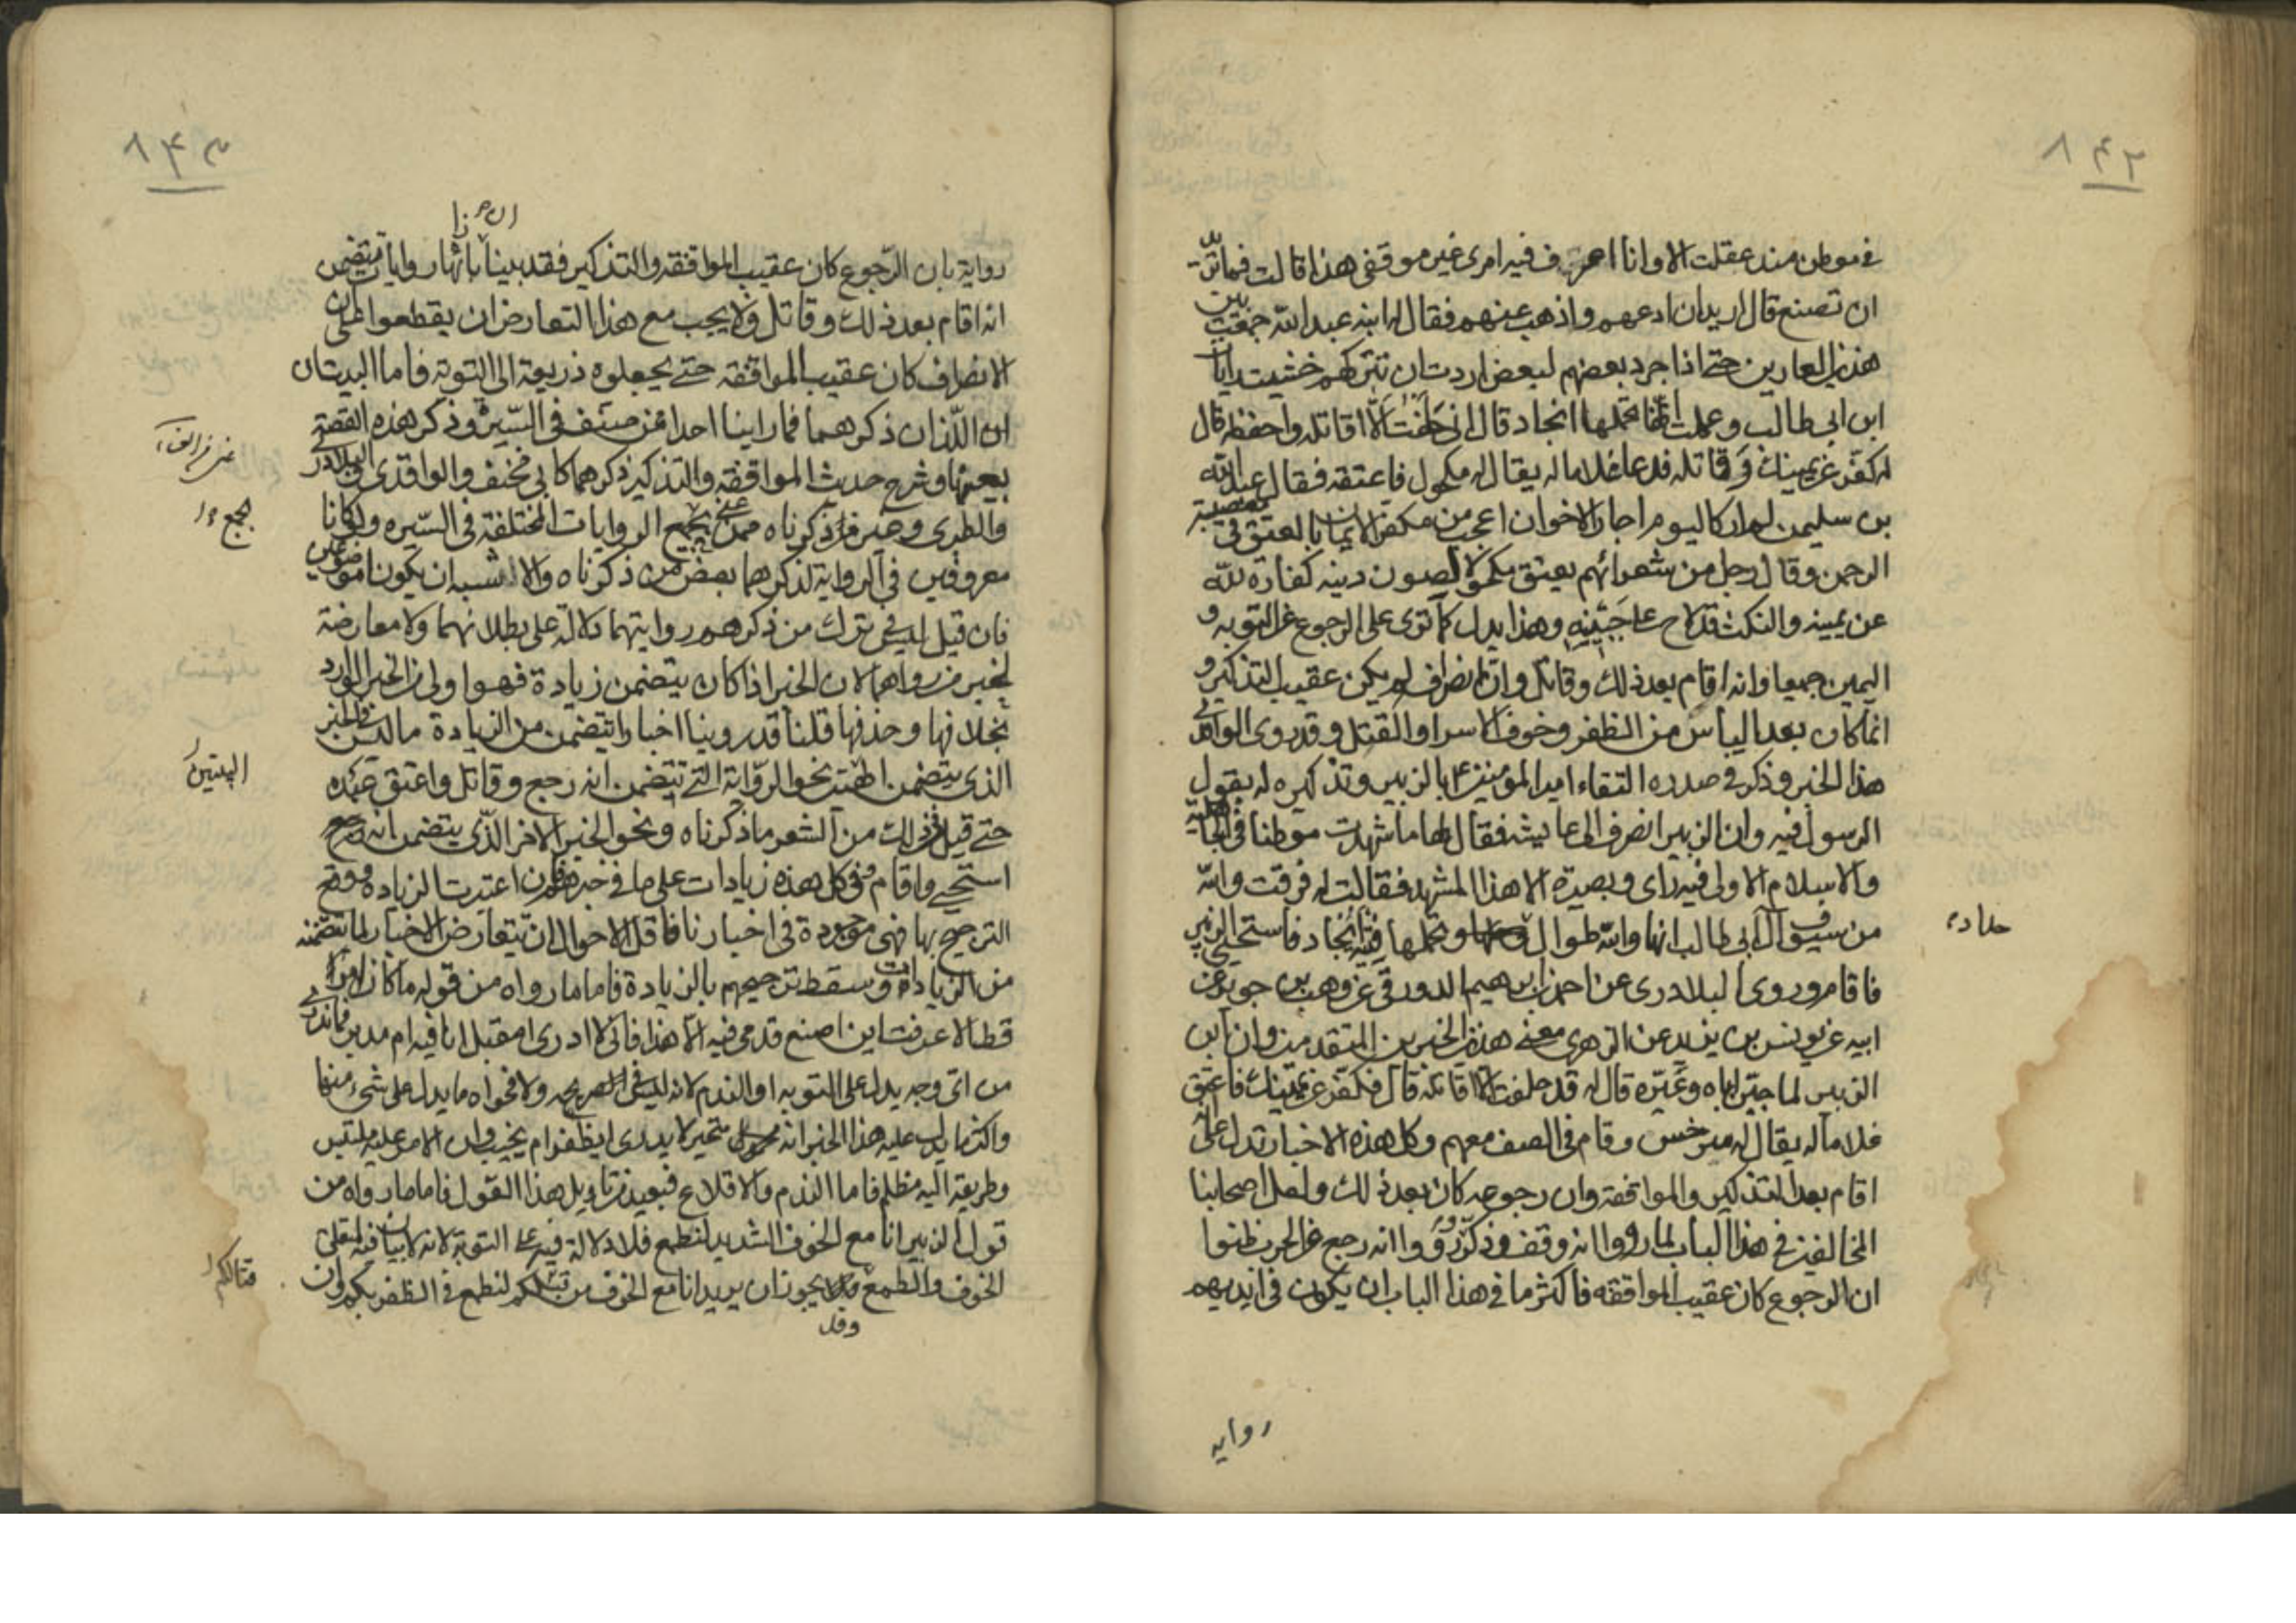 ٨٤٢
في موطن منذ عقلت الا وانا اعرف فيه امرى غير موقفى هذا قالت فما تريد
ان تصنع قال اريد ان ادعهم واذهب عنهم فقال له ابنه عبد الله جمعت بين
هذين العارين حتى اذا جرد بعضهم لبعض اردت ان تتركهم خشيت رايات
ابن ابى طالب وعلمت انها تحملها انجاد قال انى حلفت الا اقاتله واحفظه قال
له كفر عن يمينك وقاتله فدعا غلاما له يقال له مكحول فاعتقه فقال عبد الله
بن سليمن لم ار كاليوم اخا الاخوان اعجب من مكفر الايمان بالعتق في معصية
الرحمن وقال رجل من شعرائهم يعتق مكحولا لصون دينه كفارة لله
عن يمينه والنكث قد لاح على جبينه وهذا يدل كما ترى على الرجوع عن التوبه و
اليمين جميعا وانه اقام بعد ذلك وقاتل وان الانصراف لم يكن عقيب التذكير و
انما كان بعد الياس من الظفر وخوف الاسر او القتل وقد روى الواقدى
هذا الخبر وذكر في صدره التقاء امير المؤمنين ع بالزبير وتذكيره له بقول
الرسول فيه وان الزبير انصرف الى عايشه فقال لها ما شهدت موطنا في الجاهلية
والاسلام الا ولى فيه راى وبصيرة الا هذا المشهد فقالت له فرقت والله
من سيوف آل ابى طالب انها والله طوال وتحملها فتية انجاد فاستحيى الزبير
حداد
فاقام وروى البلادرى عن احمد بن ابرهيم الدورقى عن وهب بن جوير عن
ابيه عن يونس بن يزيد عن الزهرى معنى هذين الخبرين المتقدمين وان ابن
الزبير لما جبن اباه وعيره قال له قد حلفت الا اقاتله قال فكفر عن يمينك فاعتق
غلاما له يقال له سرخس وقام في الصف معهم وكل هذه الاخبار تدل على انه
اقام بعد التذكير والمواقفة وان رجوعه كان بعد ذلك ولعل اصحابنا
المخالفين في هذا الباب لما رووا انه وقف وذكر ورووا انه رجع عن الحرب ظنوا
ان الرجوع كان عقيب المواقفه فاكثر ما في هذا الباب ان يكون في ايديهم
رواية
٨٤٣
رواية بان الرجوع كان عقيب المواقفه والتذكير فقد بينا بازائها روايات تتضمن
انه اقام بعد ذلك وقاتل ولا يجب مع هذا التعارض ان يقطعوا على ان
الانصراف كان عقيب المواقفه حتى يجعلوه ذريعة الى التوبة فاما البيتان
اللذان ذكرهما فما راينا احدا ممن صنف في السير وذكر هذه القصة
بعينها وشرح حديث المواقفه والتذكير ذكرهما كابى مخنف والواقدى والبلادرى
والطبرى وغير من ذكرناه ممن عنى بجمع الروايات المختلفة في السيره ولو كانا
بجمع
معروفين في الرواية لذكرهما بعض من ذكرناه والاشبه ان يكونا موضوعين
فان قيل ليس في ترك من ذكرهم روايتهما دلالة على بطلانهما ولا معارضة
لخبر من رواهما لان الخبر اذا كان يتضمن زيادة فهو اولى من الخبر الوارد
بخلافها وحذفها قلنا قد روينا اخبارا تتضمن من الزيادة ما ليس في الخبر
الذى يتضمن البيتين نحو الرواية التى تتضمن انه رجع وقاتل واعتق عبده
البيتين
حتى قيل في ذلك من الشعر ما ذكرناه ونحو الخبر الاخر الذى يتضمن انه رجع
استحيى واقام وفي كل هذه زيادات على ما في خبرهم فان اعتبرت الزيادة ووقع
الترجيح بها فهى موجودة في اخبارنا فاقل الاحوال ان يتعارض الاخبار لما تتضمنه
من الزيادات وسقط ترجيحهم بالزيادة فاما ما رواه من قوله ما كان امر
قط الا عرفت اين اضع قدمى فيه الا هذا فانى لا ادرى امقبل انا فيه ام مدبر فما ندرى
من اى وجه يدل على التوبه او الندم لانه ليس في صريحه ولا فحواه ما يدل على شيء منها
واكثر ما يدل عليه هذا الخبر انه متحير لا يدرى ايظفر ام يخيب وان الامر عليه ملتبس
وطريقه اليه مظلم فاما الندم والاقلاع فبعيد من تاويل هذا القول فاما ما رواه من
قول الزبير انا مع الخوف الشديد لنطمع فلا دلالة فيه على التوبة لانه لا بيان فيه لمتعلق
الخوف والطمع وقد يجوز ان يريد انا مع الخوف من قتالكم لنطمع في الظفر بكم وان
قتالكم
وقد